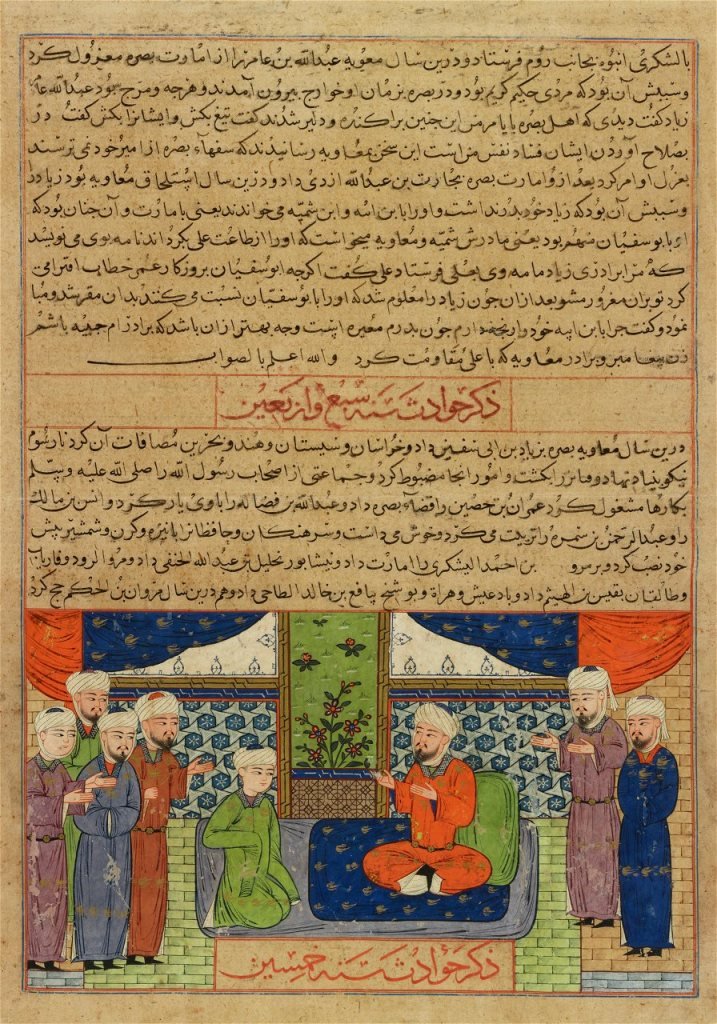 بالشکری انبوه بجانب روم فرستاد و درین سال معویه عبدالله بن عامر را از امارت بصره معزول کرد
و سببش آن بود که مردی حکیم کریم بود و در بصره بزمان او خوارج بیرون آمدند و هرجه و مرج بود عبدالله عامر
زیاد کفت دیدی که اهل بصره این جنین براکنده و دلیر شدند کفت تیغ بکش و ایشانرا بکش کفت در
بصلاح آوردن ایشان فساد نفس من است این سخن بمعاویه رسانیدند که سفهاء بصره از امیر خود نمی ترسند
بعزل او امر کرد بعد از و امارت بصره بحارث بن عبدالله ازدی داد و درین سال استلحاق معاویه بود زیاد را
و سببش آن بود که زیاد خود بدر نداشت و او را ابن امه و ابن سمیه می خواندند یعنی و آن جنان بود که
او با بوسفیان متهم بود یعنی مادرش سمیه و معاویه میخواست که او را از طاعت علی بکرداند نامه بوی می نویسد
که مرا برادری زیاد نامه وی بعلی فرستاد علی کفت اکرجه ابوسفیان بروزکار عمر خطاب اقرار می
کرد تو بران مغرور مشو بعد از ان جون زیاد را معلوم شد که او را با بوسفیان نسبت می کنند بدان مقر شد و مبا
نمود و کفت جرا با بن ابیه خود را جون بدرم مغیره اینست وجه بهتر ازان باشد که برادرم باشم
امیر و برادر معاویه که با علی مقاومت کرد والله اعلم بالصواب
ذکر حوادث سنه سبع و اربعین
درین سال معاویه بصره بزیاد بن ابی سفین داد و خراسان و سیستان و هند و بحرین مضافات آن کرد تا رسوم
نیکو بنیاد نهاد و امور انجا مضبوط کرد و جماعتی از اصحاب رسول الله را صلی الله علیه و سلم
بکارها مشغول کرد عمران بن حصین را قضاء بصره داد و عبدالله بن فضاله را با وی یار کرد و انس بن مالک
را و عبدالرحمن بن سمره را تربیت می کرد و خوش می داشت و سرهنکان و حافظان با نیزه و کرز و شمشیر بیش
خود نصب کرد و بر مرو بن احمد الیشکری را امارت داد و نیشابور بخلیل بن عبدالله الحنفی داد و مرو الرود و فاریاب
و طالقان بقیس بن الهیثم داد و بادغیس و هراة و بوشنج بنافع بن خالد الطاحی داد و هم درین سال مروان بن الحکم حج کرد
ذکر حوادث سنه خمسین